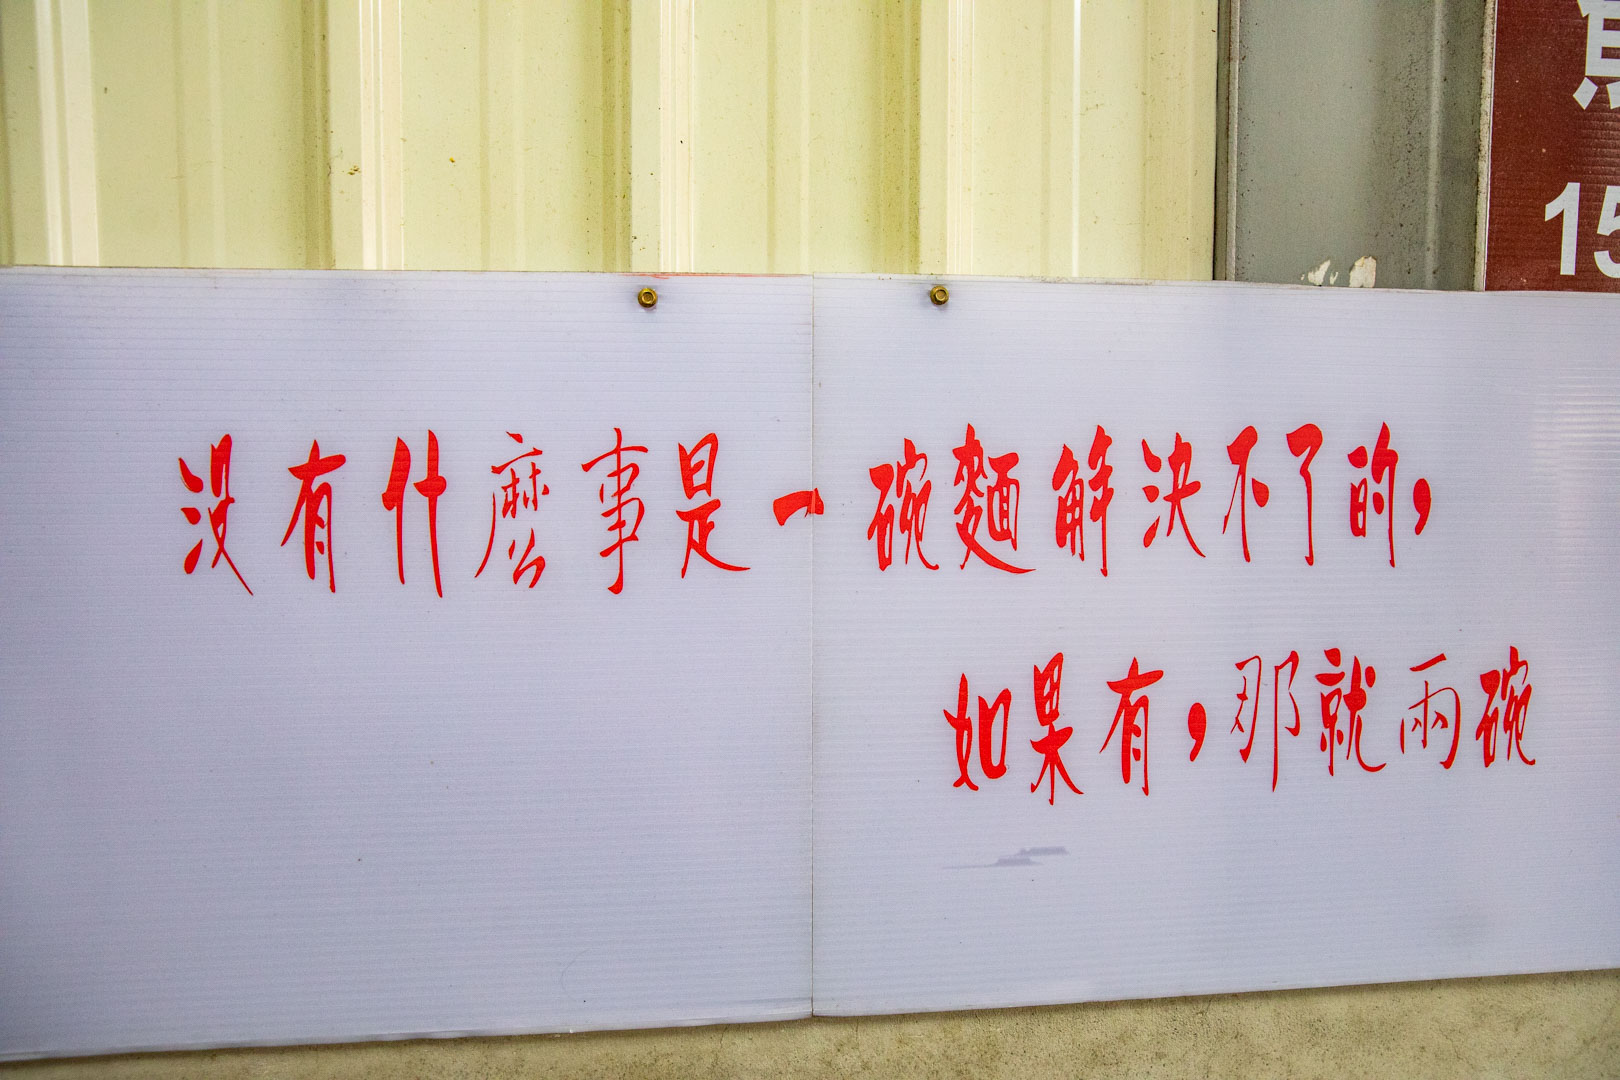 沒有什麼事是一碗麵解決不了的，
如果有，那就兩碗
15